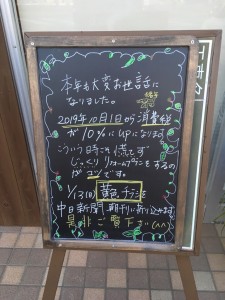 本年も大変お世話に
なりました。
2019年10月1日から消費税
が10%にUPになります
こういう時こそ慌てず
じっくりリフォームプランをするの
がコツです。
1/13(日) 黄色チラシを
中日新聞朝刊に折り込みます
是非ご覧下さい(^^)